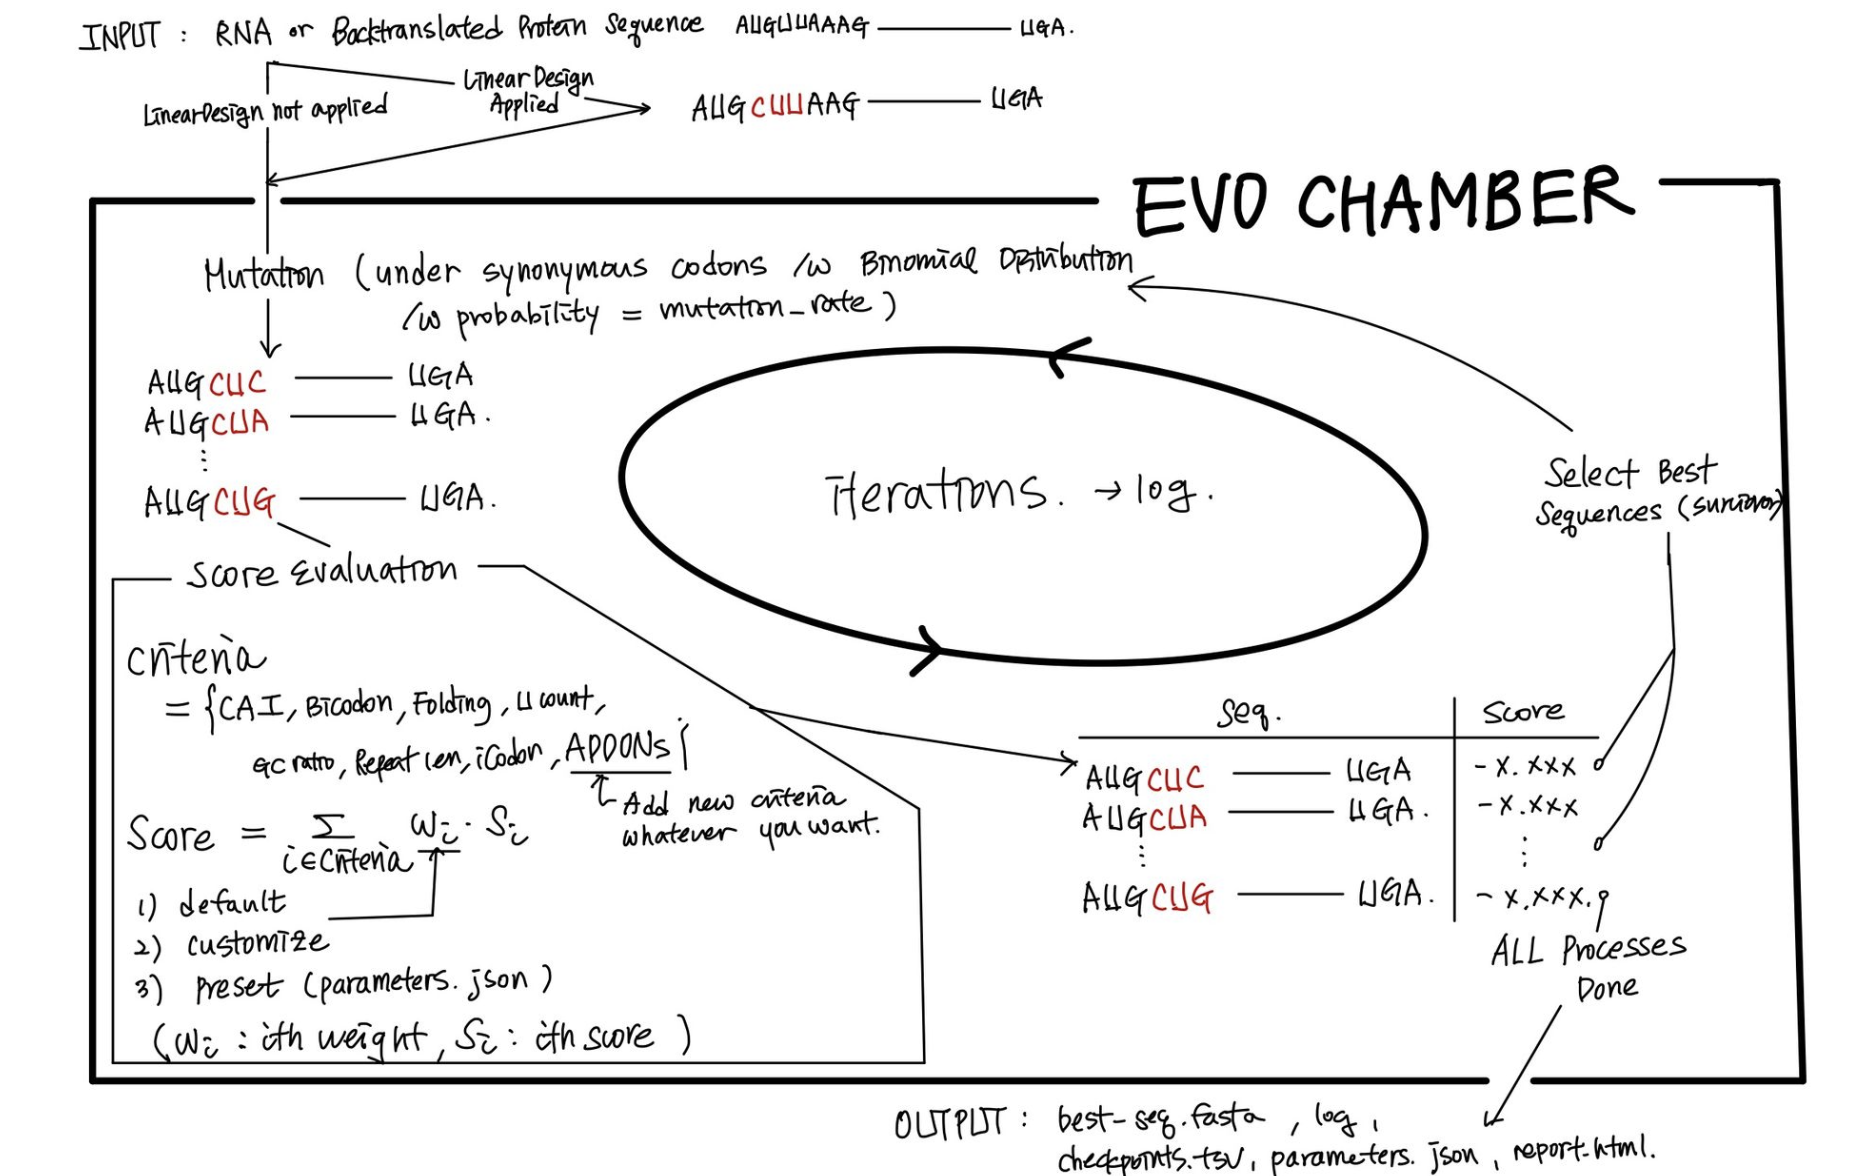 INPUT : RNA or Backtranslated Protein Sequence AUGUUAAAG UGA.
LinearDesign not applied
LinearDesign
Applied
AUGCUUAAG UGA
EVO CHAMBER
Mutation (under synonymous codons /w Binomial Distribution
/w probability = mutation_rate)
AUGCUC UGA
AUGCUA UGA.
⋮
AUGCUG UGA.
iterations. → log.
Select Best
Sequences (survivor)
Score Evaluation
Criteria
= {CAI, Bicodon, Folding, U count,
GC ratio, Repeat len, iCodon, ADDONs}
Add new criteria
whatever you want.
Score = Σ wi · Si
i∈Criteria
1) default
2) customize
3) Preset (parameters.json)
(wi : ith weight, Si : ith score)
Seq. Score
AUGCUC UGA -x.xxx
AUGCUA UGA. -x.xxx
⋮ ⋮
AUGCUG UGA. -x.xxx.
ALL Processes
Done
OUTPUT : best-seq.fasta, log,
checkpoints.tsv, parameters.json, report.html.